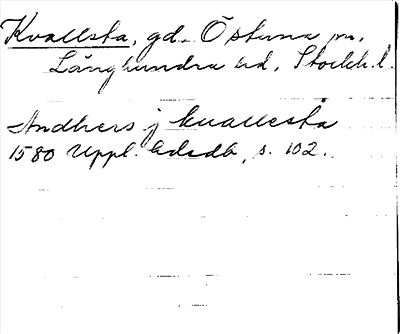 Kvallsta, gd. Östuna sn.
Långhundra hd, Stockh. l.
Andhers j kuallesta
1580 Uppl. hdsdb, s. 102.